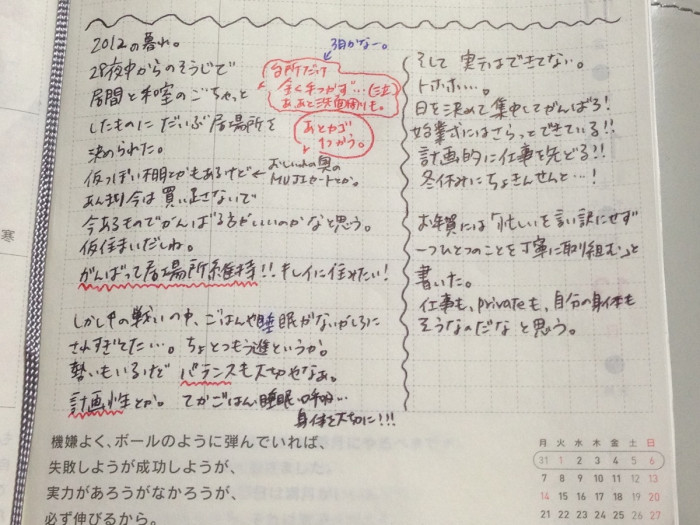 2012の暮れ。
28夜中からのそうじで
居間と和室のごちゃっと
したものにだいぶ居場所を
決められた。
仮っぽい棚とかもあるけど
あんまり今は買い足さないで
今あるものでがんばる方がいいのかなと思う。
仮住まいだしね。
がんばって居場所維持!! キレイに住みたい!
3日かなー。
台所だけ
全く手つかず…(泣)
ああと洗面周りも。
あとカゴ
1つかう。
おしいれの奥の
MUJIカートとか。
しかしその戦いの中、ごはんや睡眠がないがしろに
されすぎてた…。ちょとつもう進というか。
勢いもいるけどバランスも大切やなぁ。
計画性とか。てかごはん、睡眠、呼吸…
身体を大切に!!!
そして 実テはできてない。
トホホい…。
日を決めて集中してがんばろ!
始業式にはさらっとできている!!
計画的に仕事を先どる!!
冬休みにちょきんせんと…!
お年賀には「忙しいを言い訳にせず
一つひとつのことを丁寧に取り組む」と
書いた。
仕事も、privateも、自分の身体も
そうなのだなと思う。
機嫌よく、ボールのように弾んでいれば、
失敗しようが成功しようが、
実力があろうがなかろうが、
必ず伸びるから。
月 火 水 木 金 土 日
31 1 2 3 4 5 6
7 8 9 10 11 12 13
14 15 16 17 18 19 20
21 22 23 24 25 26 27